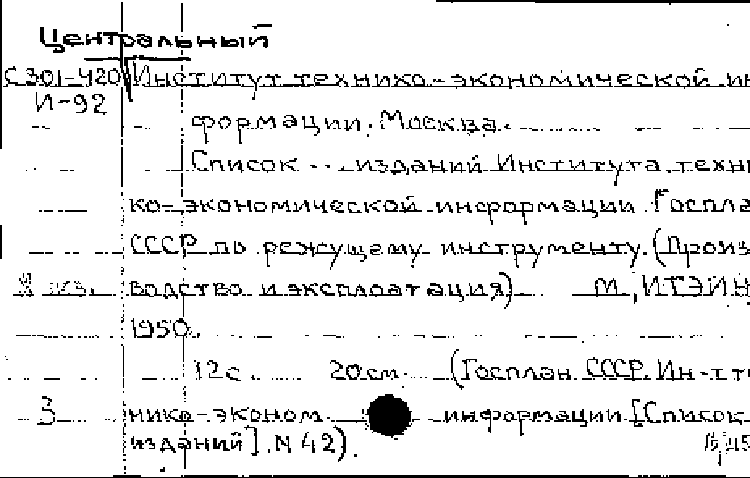 Центральный
С301-420 Институт технико-экономической ин
И-92
формации. Москва.
Список изданий Института техни
ко-экономической информации Госпла
СССР по режущему инструменту. (Произ
экз. водство и эксплоатация) М, ИТЭИН
1950.
12с. 20см. (Госплан СССР. Ин-т те
3 нико-эконом. информации [Список
изданий]. N 42).